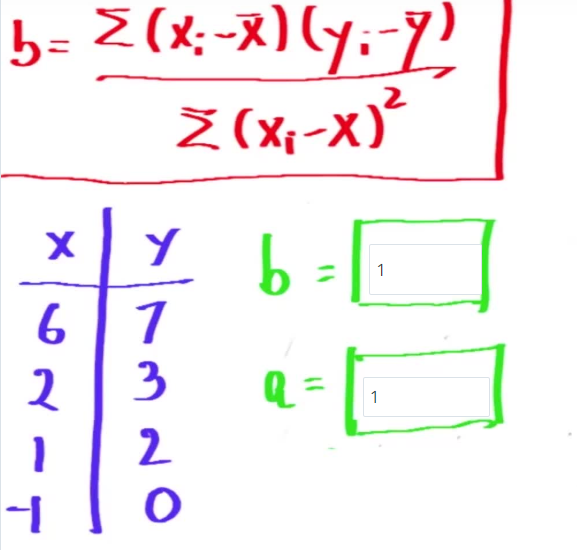 b = Σ(xᵢ-x̄)(yᵢ-ȳ)
Σ(xᵢ-x)²
x y
6 7
2 3
1 2
-1 0
b = 1
a = 1